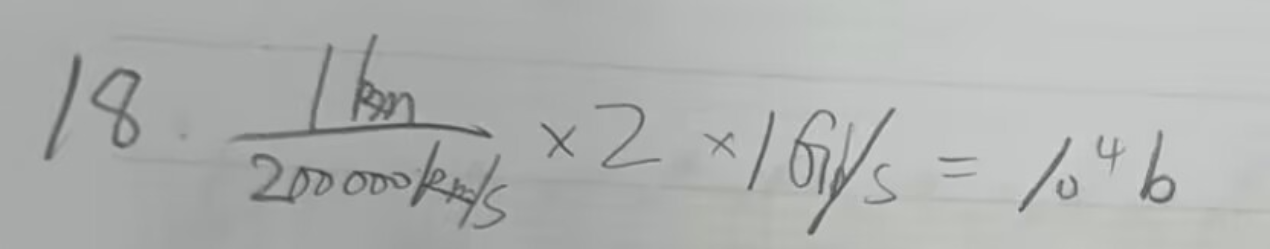 18. 1km/200000km/s ×2 ×1Gb/s = 10⁴b